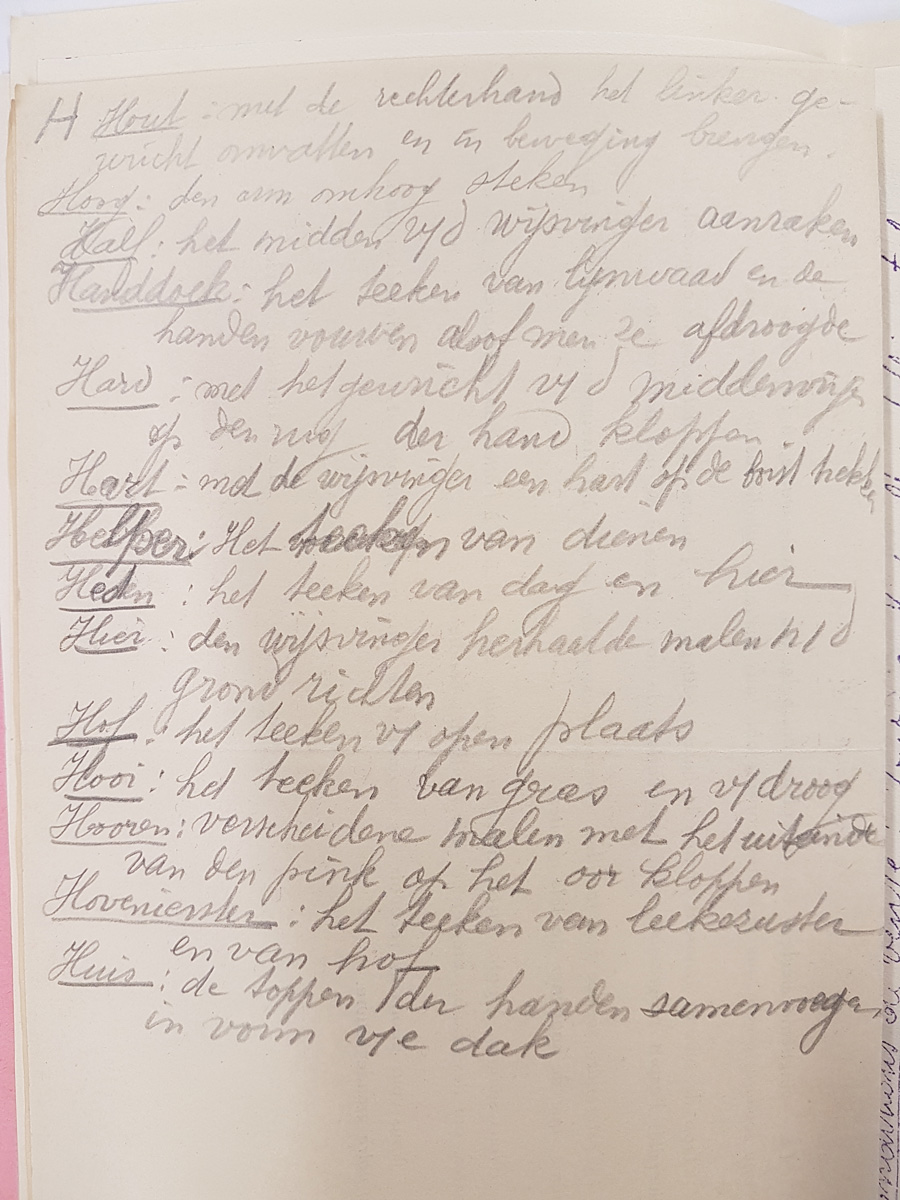 H Hout : met de rechterhand het linker ge-
wricht omvatten en in beweging brengen.
Hoog : den arm omhoog steken
Half : het midden v/d wijsvinger aanraken
Handdoek : het teeken van lijnwaad en de
handen vouwen alsof men ze afdroogde
Hard : met het gewricht v/d middenvinger
op den rug der hand kloppen.
Hart : met de wijsvinger een hart op de borst trekken
Helper : Het teeken van dienen
Heden : het teeken van dag en hier
Hier : den wijsvinger herhaalde malen n/d
grond richten
Hof : het teeken v/ open plaats
Hooi : het teeken van gras en v/droog
Hooren : verscheidene malen met het uiteinde
van den pink op het oor kloppen
Hovenierster : het teeken van leekezuster
en van hof
Huis : de toppen der handen samenvoegen
in vorm v/e dak